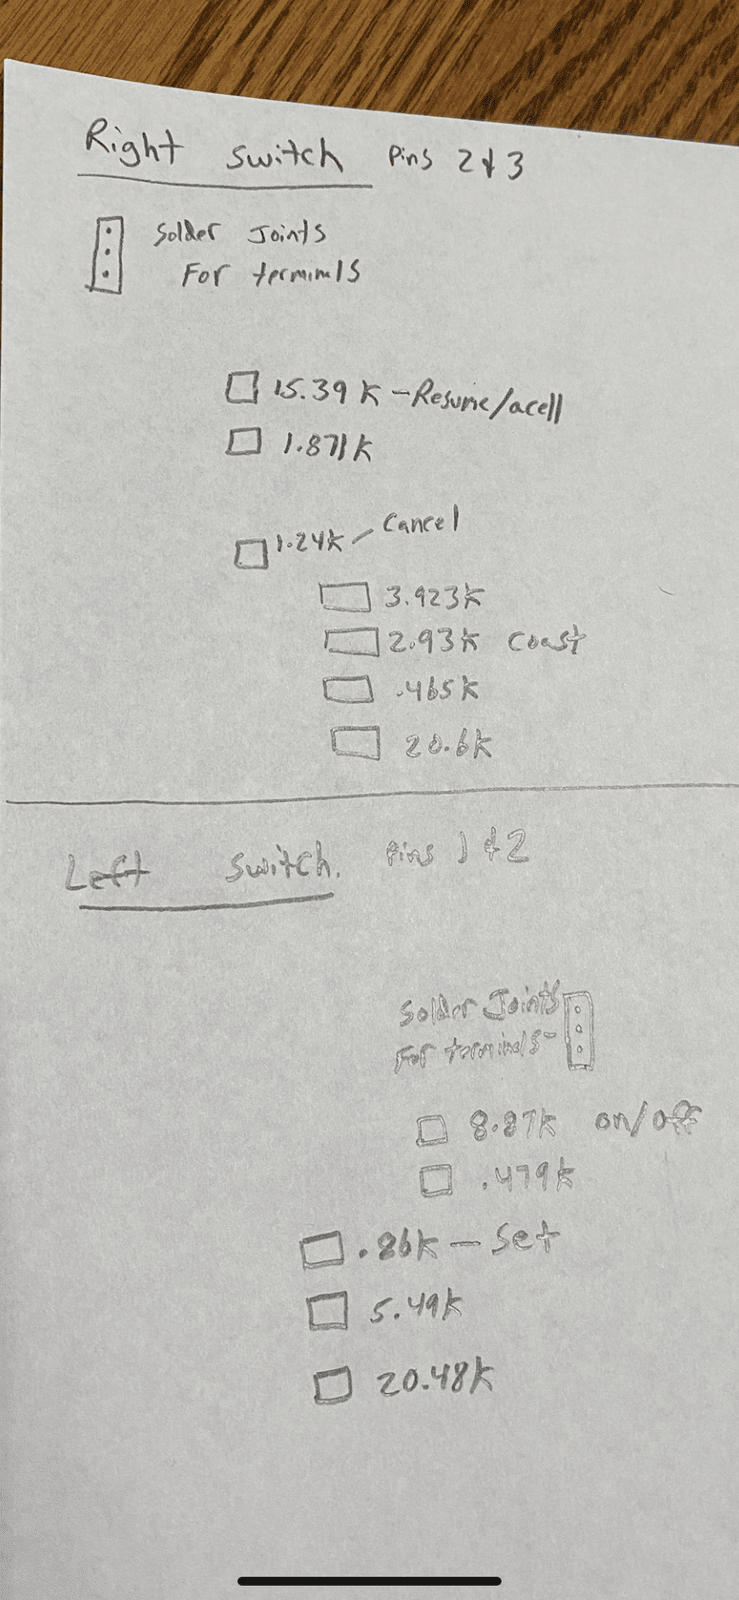 Right switch Pins 2 & 3
Solder Joints
For terminals
15.39 K - Resume/acell
1.871K
1.24K - Cancel
3.923K
2.93K Coast
.465K
20.6K
Left switch. Pins 1 & 2
Solder Joints
For terminals-
8.87K on/off
.479K
.86K - Set
5.49K
20.48K